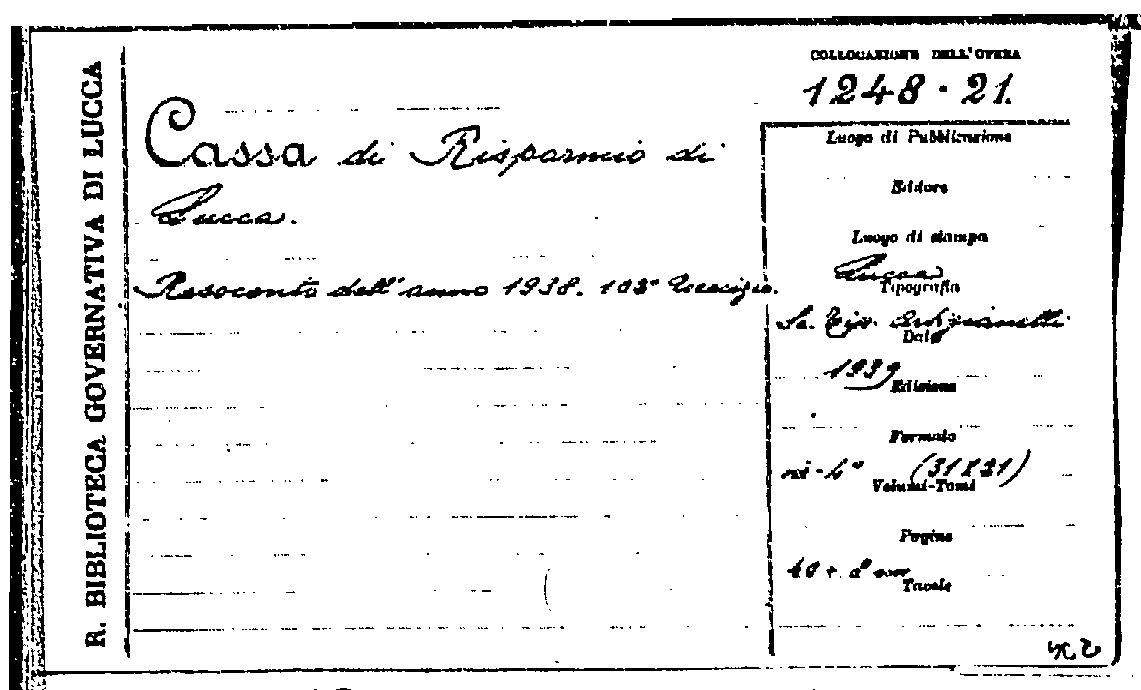 R. BIBLIOTECA GOVERNATIVA DI LUCCA
COLLOCAZIONE DELL'OPERA
1248 - 21.
Cassa di Risparmio di
Lucca.
Resoconto dell'anno 1938. 103° Esercizio.
Luogo di Pubblicazione
Editore
Luogo di stampa
Lucca
Tipografia
Sc. Tip. Artigianelli
Data
1939
Edizione
Formato
in-4° (31x21)
Volumi-Tomi
Pagine
Tavole